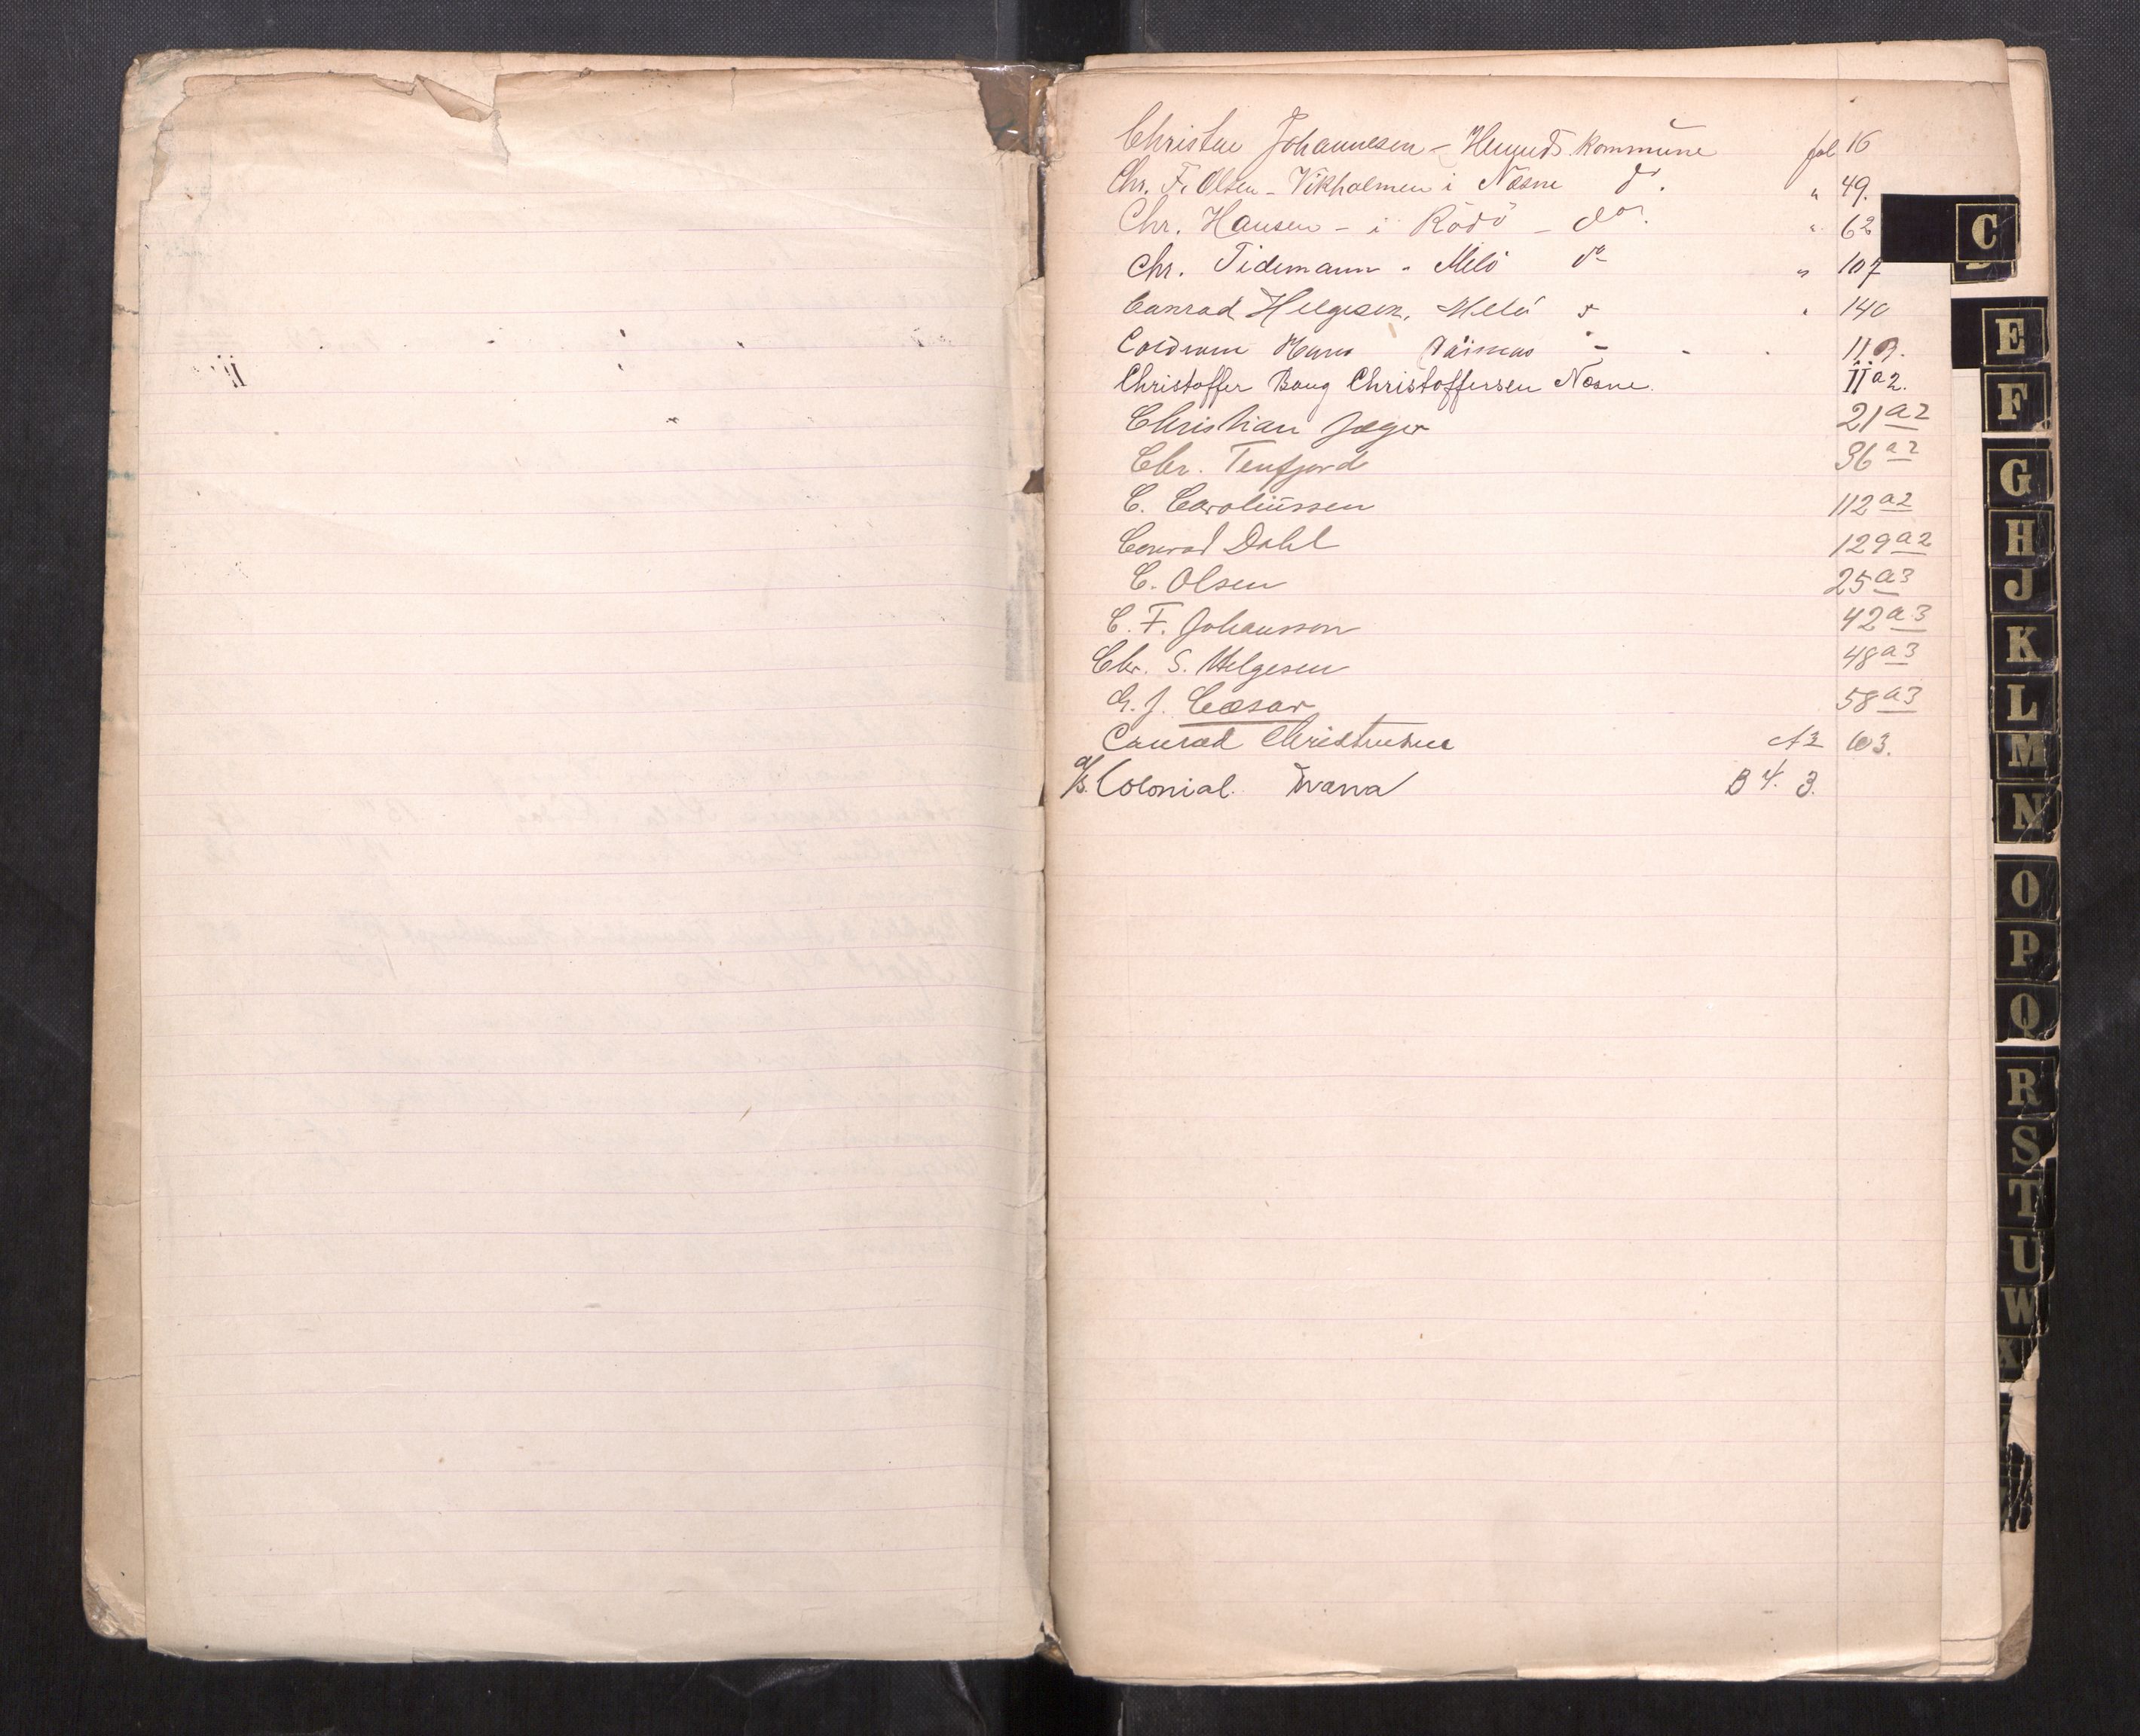 Christen Johannesen - Hemnæs kommune fol 16
Chr. F. Olsen - Vikholmen i Næsne do. " 49.
Chr. Hansen - i Rödö - do. " 62
Chr. Tidemann - Melö do " 107
Conrad Helgesen, Melö " 140
Hans - - - 119.
Christoffer Baug Christoffersen Næsne. 11 a2.
Christian Jæger 21 a2
Chr. Tenfjord 36 a2
C. Caroliussen 112 a2
Conrad Dahl 129 a2
C. Olsen 25 a3
C. F. Johansson 42 a3
Chr. S. Helgesen 48 a3
G. J. Cæsar 58 a3
Conrad Christensen A3 103.
A/S. Colonial. B 4. 3.
C
E
F
G
H
J
K
L
M
N
O
P
Q
R
S
T
U
W
X